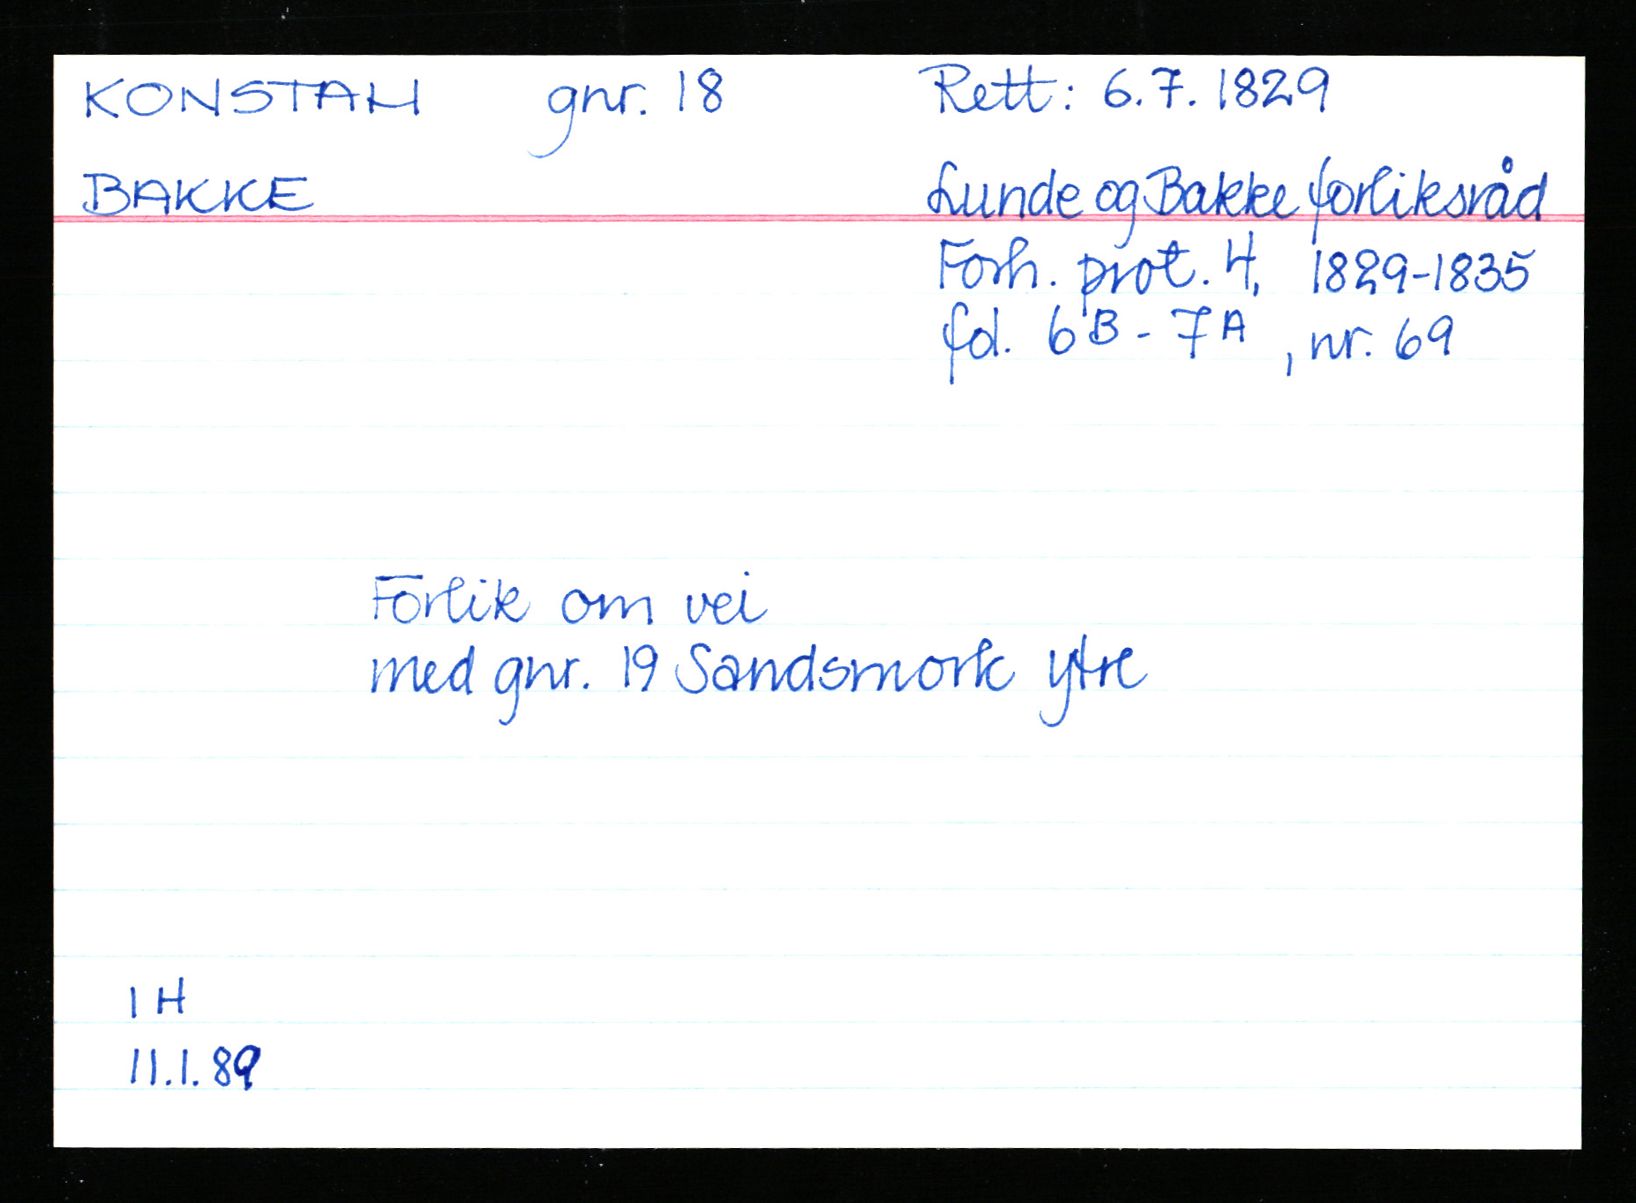 KONSTALI gnr. 18 Rett: 6.7.1829
BAKKE Lunde og Bakke forliksråd
Forh. prot. 4, 1829-1835
fol. 6B - 7A, nr. 69
Forlik om vei
med gnr. 19 Sandsmork ytre
IH
11.1.89